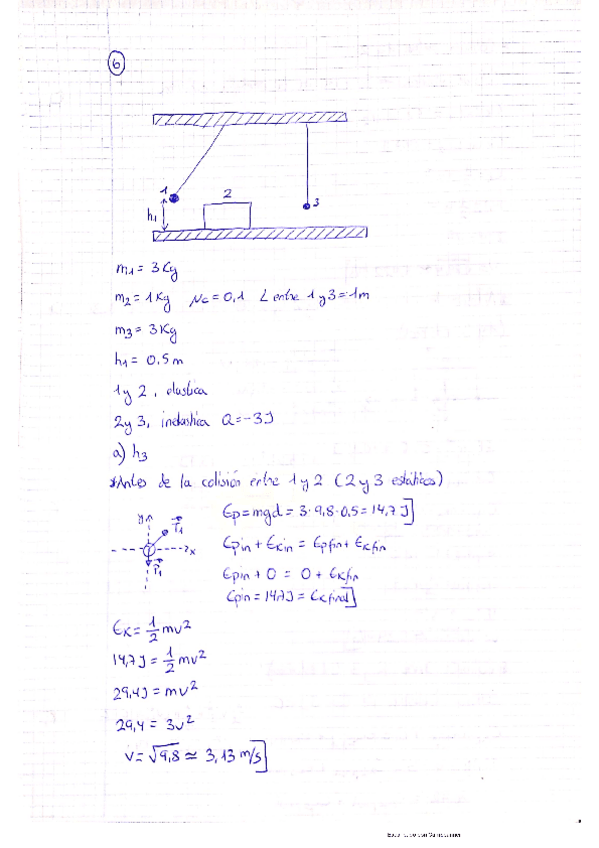 6
1
2
3
h₁
m₁ = 3 Kg
m₂ = 1 Kg μc = 0,1 L entre 1 y 3 = 1m
m₃ = 3 Kg
h₁ = 0,5 m
1 y 2, elastica
2 y 3, inelastica Q = -3J
a) h₃
*Antes de la colisión entre 1 y 2 (2 y 3 estáticos)
y
T₁
x
P₁
Ep = mgd = 3·9,8·0,5 = 14,7 J
Epin + Ekin = Epfin + Ekfin
Epin + 0 = 0 + Ekfin
Epin = 14,7J = Ekfinal
Ek = 1/2 mv²
14,7 J = 1/2 mv²
29,4 J = mv²
29,4 = 3v²
v = √9,8 ≃ 3,13 m/s